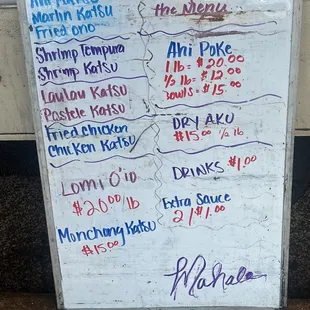 Marlin Katsu
Fried ono
Shrimp Tempura
Shrimp Katsu
Laulau Katsu
Pastele Katsu
Fried Chicken
Chicken Katsu
Lomi O'io
$20.00 lb
Monchong Katsu
$15.00
the Menu
Ahi Poke
1 lb = $20.00
1/2 lb = $12.00
Bowls = $15.00
DRY AKU
$15.00 1/2 lb
DRINKS $1.00
Extra Sauce
2/$1.00
Mahalo